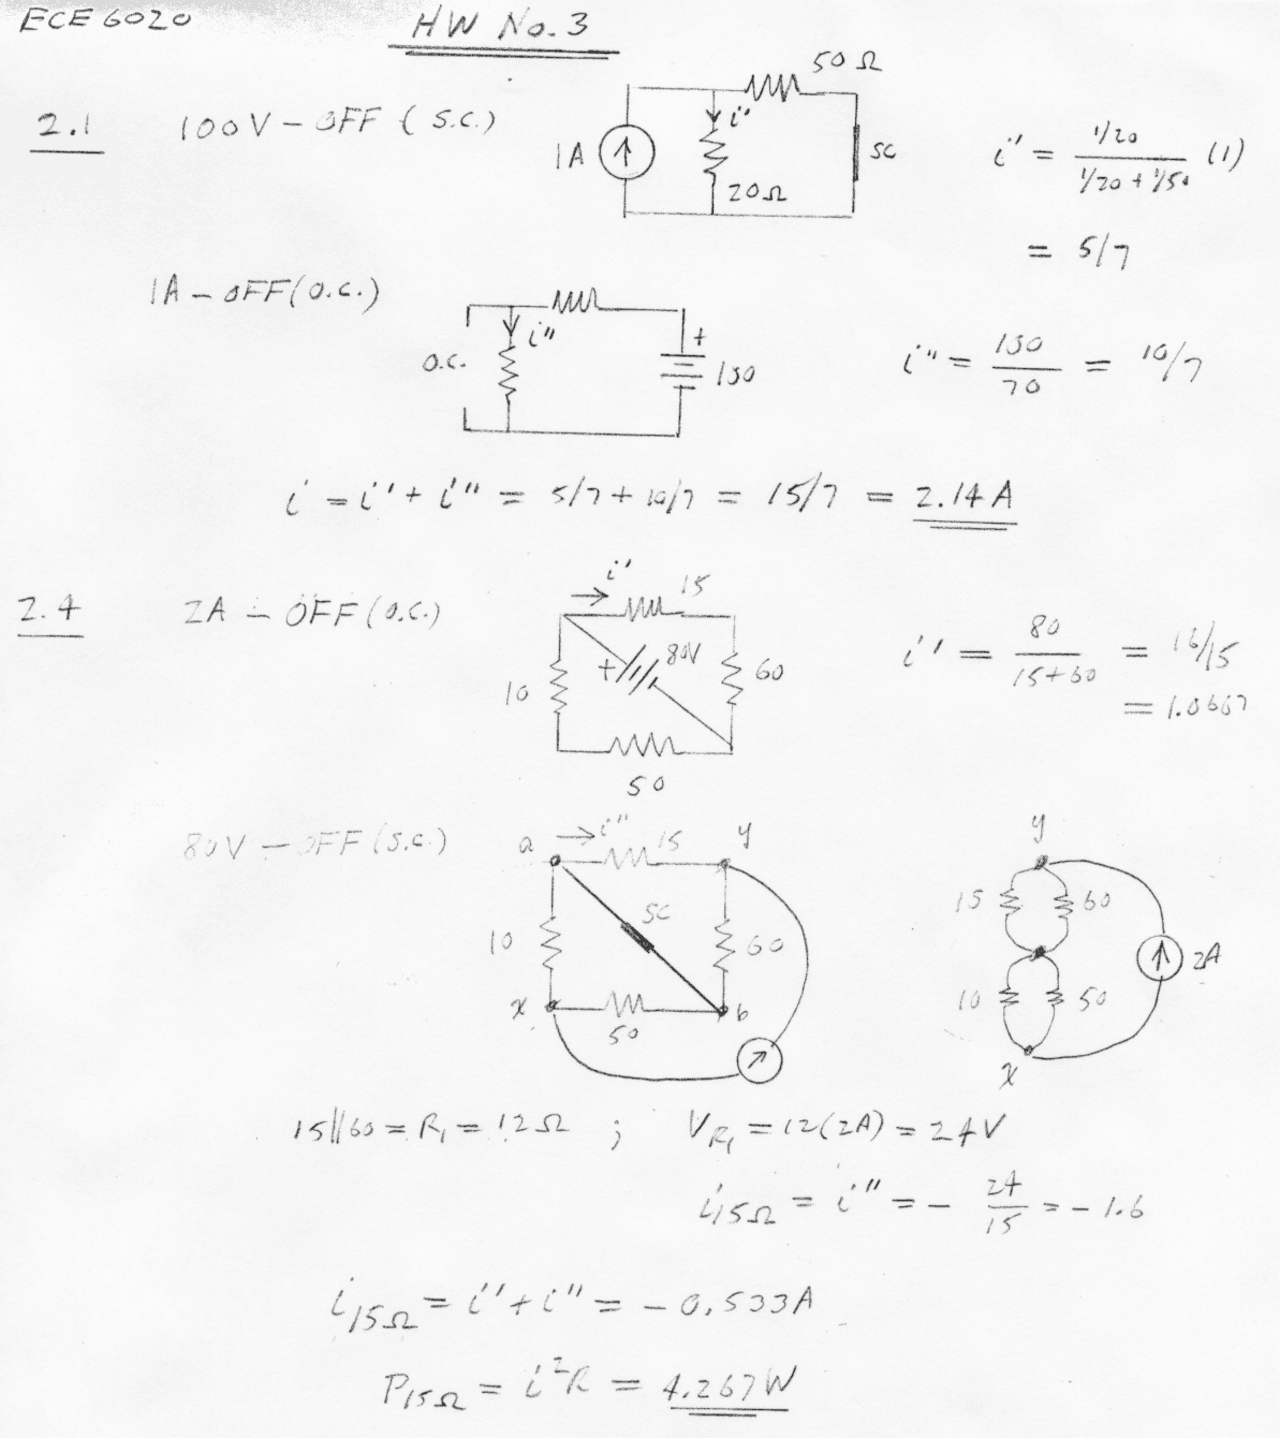 ECE 6020
HW No. 3
2.1 100V - OFF (S.C.)
50 Ω
1A
i'
20Ω
SC
i' = 1/20 / (1/20 + 1/50) (1)
= 5/7
1A - OFF (O.C.)
O.C.
i"
+
100
i" = 100 / 70 = 10/7
i = i' + i" = 5/7 + 10/7 = 15/7 = 2.14 A
2.4 2A - OFF (O.C.)
i'
15
+
80V
10
60
50
i' = 80 / (15+60) = 16/15
= 1.0667
80V - OFF (S.C.)
a
i"
15
y
10
SC
60
x
50
b
y
15
60
2A
10
50
x
15||60 = R₁ = 12Ω ; V_R₁ = 12(2A) = 24V
i₁₅Ω = i" = - 24 / 15 = - 1.6
i₁₅Ω = i' + i" = - 0.533A
P₁₅Ω = i²R = 4.267W